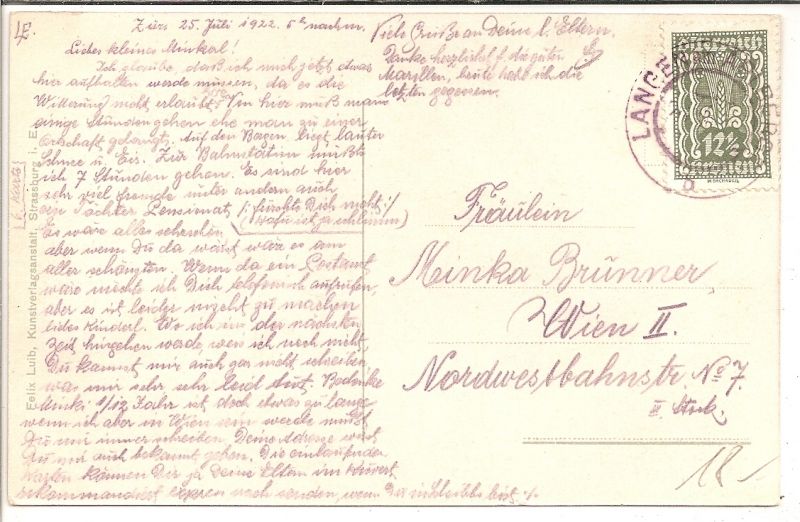 Zürs 25. Juli 1922. 5h nachm.
Liebes kleines Minkerl!
Ich glaube, daß ich mich jetzt etwas
hier aufhalten werde müssen, da es die
Witterung nicht erlaubt. Von hier muß man
einige Stunden gehen ehe man zu einer
Ortschaft gelangt. Auf den Bergen liegt lauter
Schnee u. Eis. Zur Bahnstation müßte
ich 7 Stunden gehen. Es sind hier
sehr viel fremde unter andern auch
ein Töchter Pensionat (: fürchte Dich nicht :/
Es wäre alles sehr schön
aber wenn Du da wärst wär es am
aller schönsten. Wenn da ein Postamt
wäre möchte ich Dich telefonisch anrufen,
aber es ist leider nicht zu machen
liebes Kinderl. Wo ich in der nächsten
Zeit hingehen werde weis ich noch nicht,
Du kannst mir auch gar nicht schreiben
was mir sehr sehr leid tut.
Minki 1/12 Jahr ist doch etwas zu lange
wenn ich aber in Wien sein werde mußt
Du mir immer schreiben. Deine Adresse wirst
Du mir auch bekannt geben. Die einlaufenden
Karten können Dir ja Deine Eltern im Kuvert
rekommandiert express nach senden, wenn Du
Viele Grüße an Deine l. Eltern.
Danke herzlichst f. die guten
Marillen, heute habe ich die
letzten gegessen.
Felix Luib, Kunstverlagsanstalt, Strassburg i. E.
12½
Fräulein
Minka Brünner,
Wien II.
Nordwestbahnstr. No 7.
II. Stock.
18-